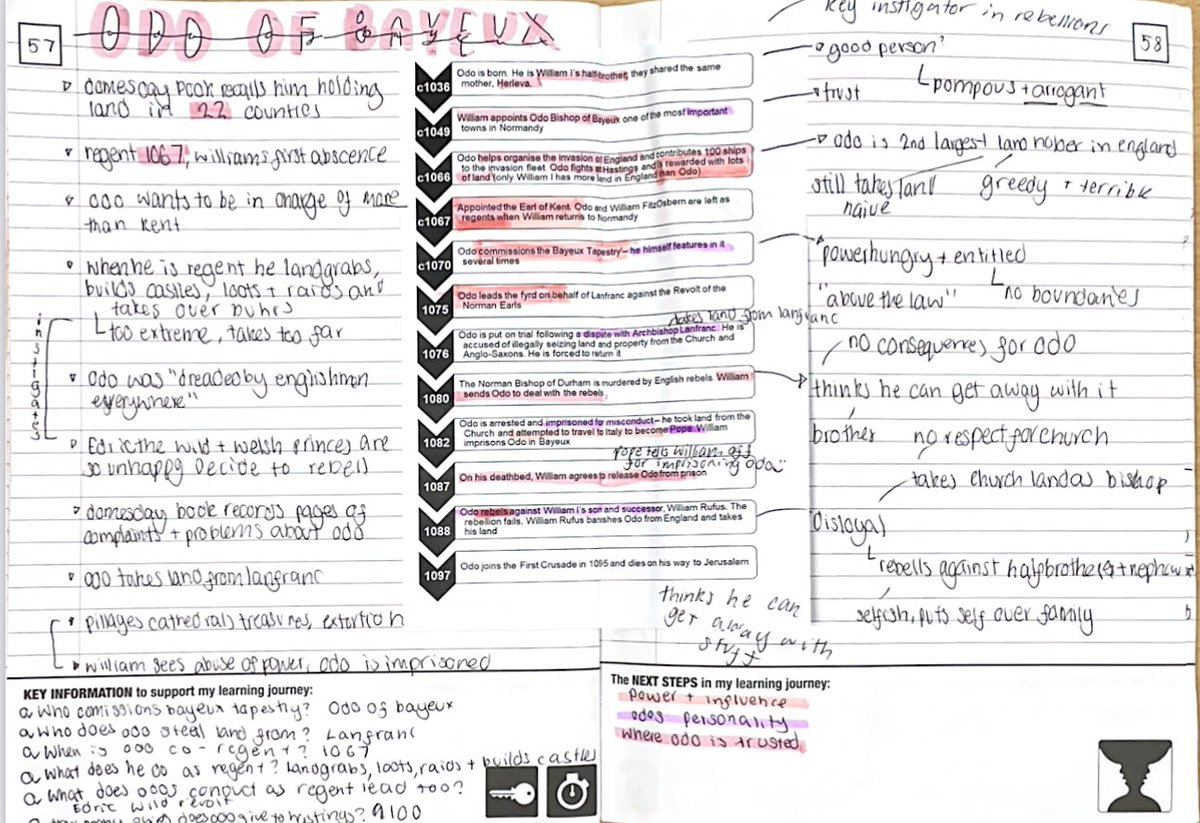 57
ODO OF BAYEUX
domesday book recalls him holding
land in 22 counties
regent 1067, williams first abscence
odo wants to be in charge of more
than kent
when he is regent he landgrabs,
builds castles, loots + raids and
takes over buhrs
too extreme, takes too far
instigates
odo was "dreaded by englishmen
everywhere"
Edric the wild + welsh princes are
so unhappy decide to rebell
domesday book records pages of
complaints + problems about odo
odo takes land from lanfranc
pillages cathedrals treasures, extortion
william sees abuse of power, odo is imprisoned
KEY INFORMATION to support my learning journey:
Q Who comissions bayeux tapestry? Odo of bayeux
Q who does odo steal land from? Lanfranc
Q When is odo co-regent? 1067
Q What does he do as regent? landgrabs, loots, raids + builds castles
Q What does odos conduct as regent lead too?
Edric wild revolt
ships does odo give to hastings? A 100
c1036
Odo is born. He is William I's half-brother, they shared the same
mother, Herleva.
c1049
William appoints Odo Bishop of Bayeux one of the most important
towns in Normandy
c1066
Odo helps organise the invasion of England and contributes 100 ships
to the invasion fleet. Odo fights at Hastings and is rewarded with lots
of land (only William I has more land in England than Odo)
c1067
Appointed the Earl of Kent. Odo and William FitzOsbern are left as
regents when William returns to Normandy
c1070
Odo commissions the Bayeux Tapestry – he himself features in it
several times
1075
Odo leads the fyrd on behalf of Lanfranc against the Revolt of the
Norman Earls
takes land from lanfranc
1076
Odo is put on trial following a dispute with Archbishop Lanfranc. He is
accused of illegally seizing land and property from the Church and
Anglo-Saxons. He is forced to return it
1080
The Norman Bishop of Durham is murdered by English rebels. William
sends Odo to deal with the rebels
1082
Odo is arrested and imprisoned for misconduct – he took land from the
Church and attempted to travel to Italy to become Pope. William
imprisons Odo in Bayeux
pope tells william off
for imprisoning odo
1087
On his deathbed, William agrees to release Odo from prison
1088
Odo rebels against William I's son and successor, William Rufus. The
rebellion fails. William Rufus banishes Odo from England and takes
his land
1097
Odo joins the First Crusade in 1095 and dies on his way to Jerusalem
thinks he can
get away with
stuff
58
key instigator in rebellions
good person?
pompous + arrogant
trust
odo is 2nd largest land holder in england
still takes land
naive
greedy + terrible
powerhungry + entitled
"above the law"
no boundaries
no consequences for odo
thinks he can get away with it
brother
no respect for church
takes church land as bishop
Disloyal
rebells against halfbrother + nephew
selfish, puts self over family
The NEXT STEPS in my learning journey:
power + influence
odos personality
where odo is trusted